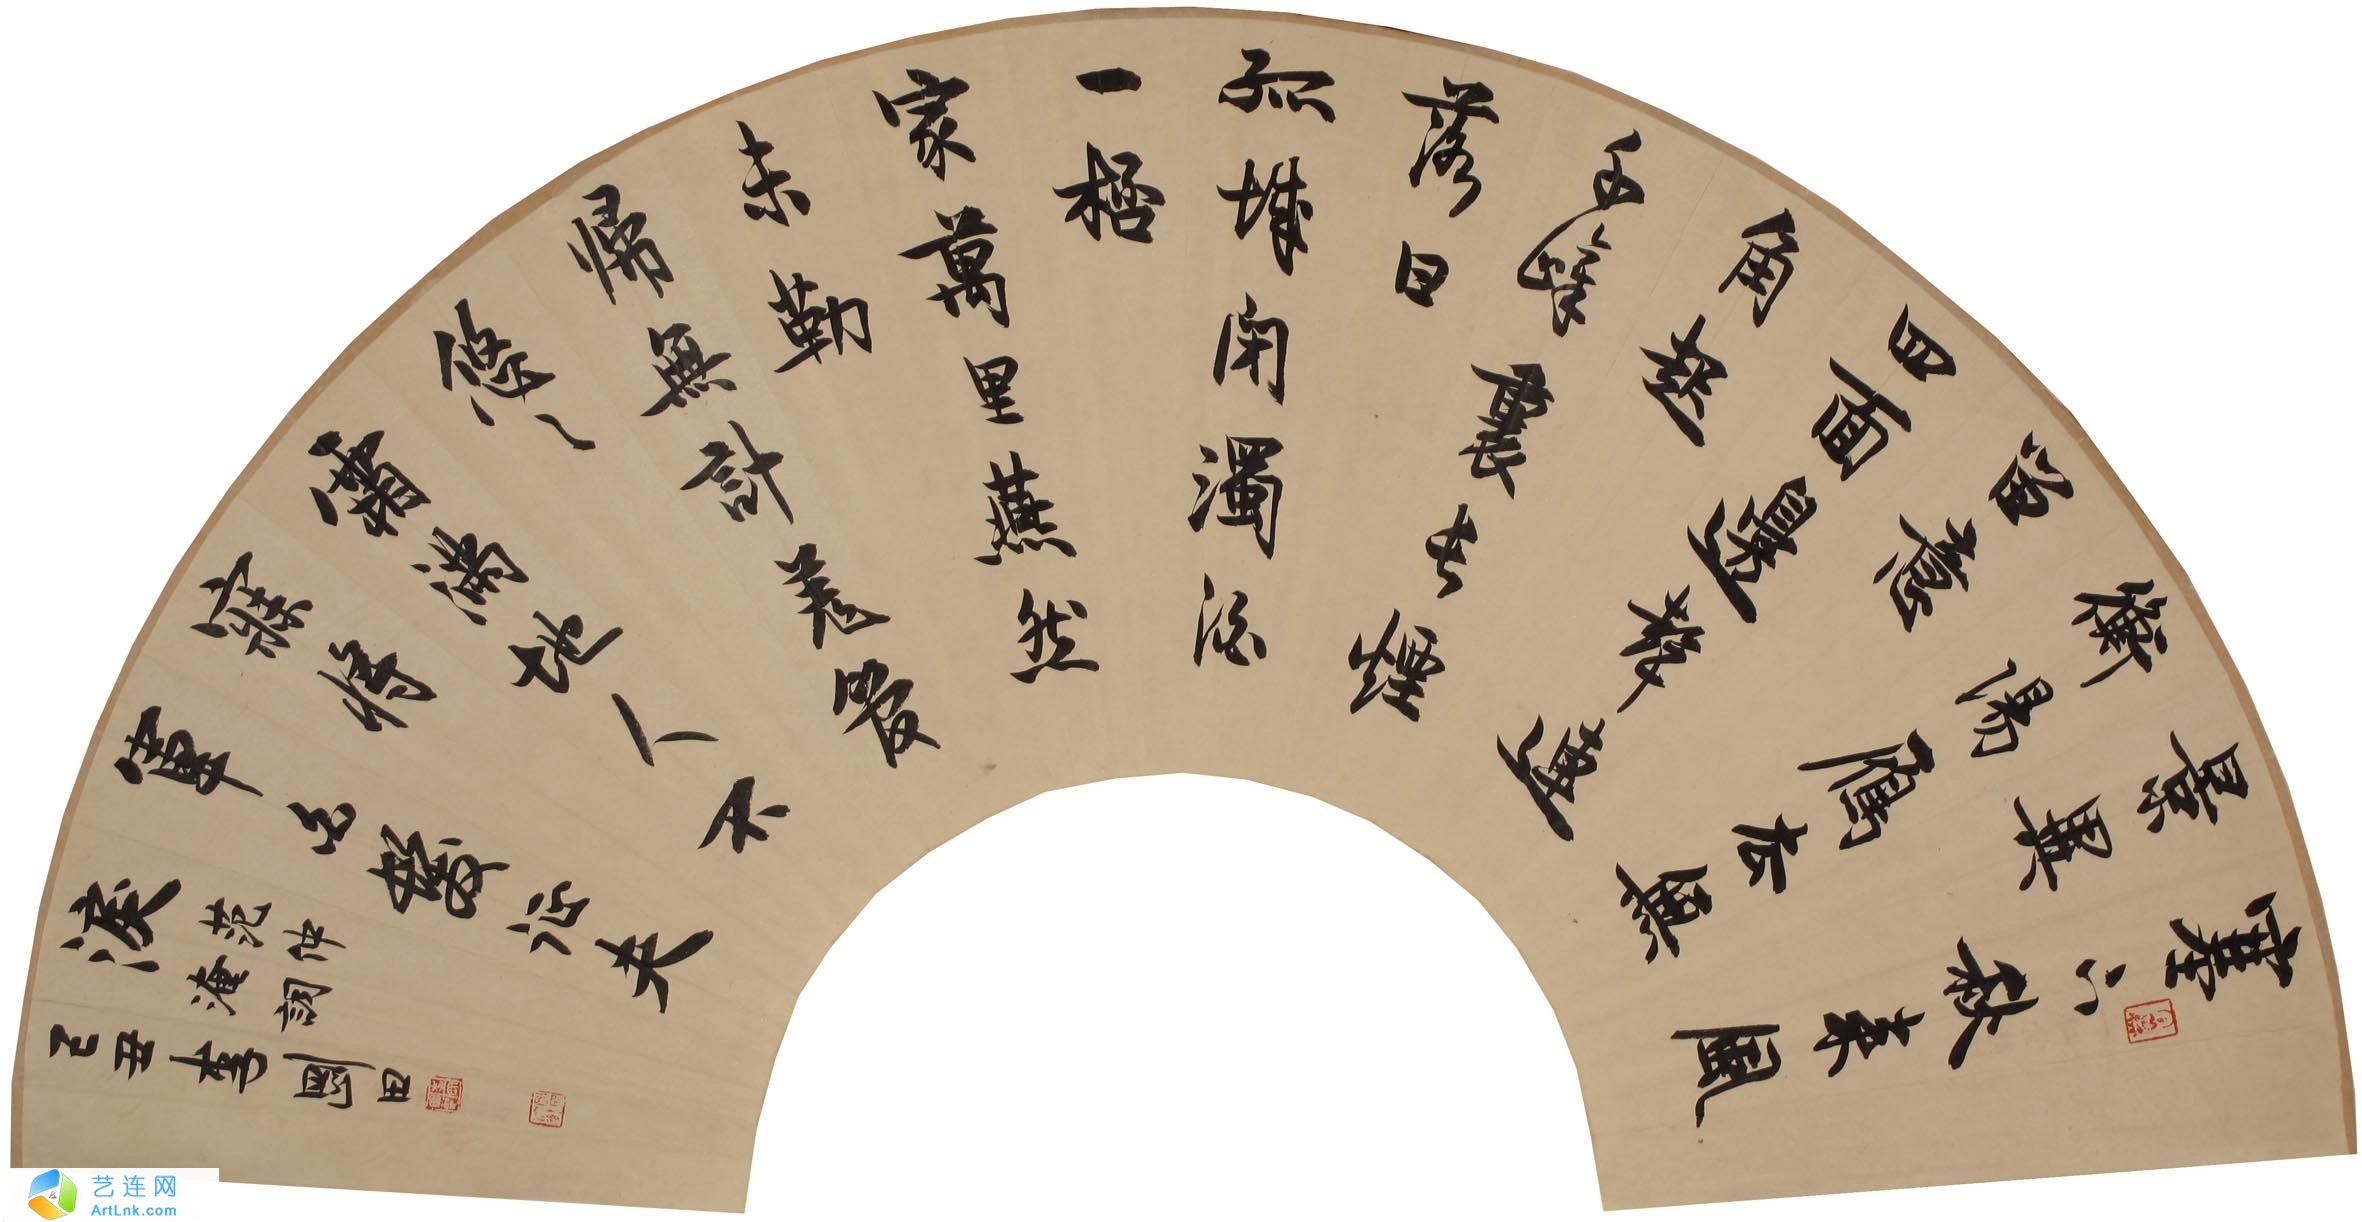 塞下秋來風
景異
衡陽雁去無
留意
四面邊聲連
角起
千嶂裏長煙
落日
孤城閉濁酒
一桮
家萬里燕然
未勒
歸無計羌管
悠悠
霜滿地人不
寐將
軍白髮征夫
淚
范仲
淹詞
己丑李剛田
艺连网
ArtLnk.com